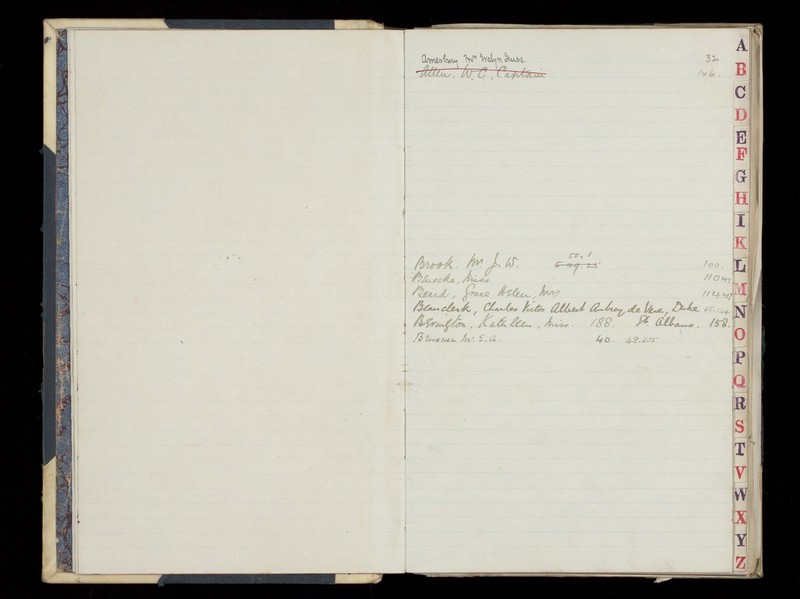 Amesbury Mrs Evelyn 32
Allen. W. C., Captain 146.
Brook. Mr. J. W. 100.
Miss 110
Beard, Grace Mrs 114
Beauclerk, Charles Victor Albert Aubrey de Vere, Duke
Kathleen, Miss. 188. St Albans. 158.
Mr. E. A. 40. 48.
A
B
C
D
E
F
G
H
I
K
L
M
N
O
P
Q
R
S
T
V
W
X
Y
Z